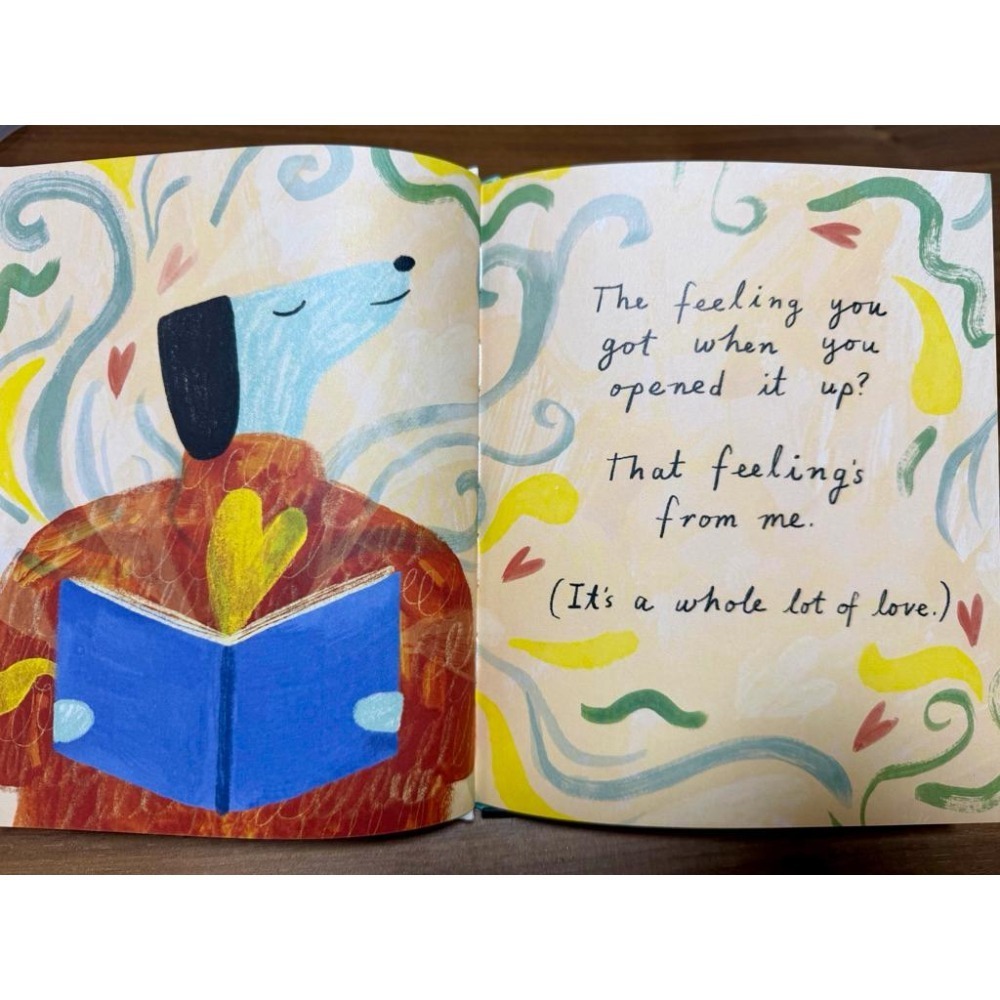 The feeling you
got when you
opened it up?
That feeling's
from me.
(It's a whole lot of love.)